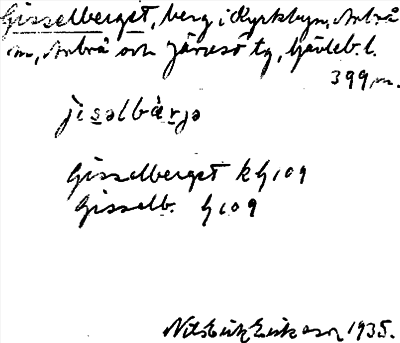 Gisselberget, berg i Kyrkbyn, Arbrå
sn, Arbrå och Järvsö tg, Gävleb. l.
399 m.
jisəlbärjə
Gisselberget k G 109
Gisselb. G 109
Nils Erik Eriksson 1935.